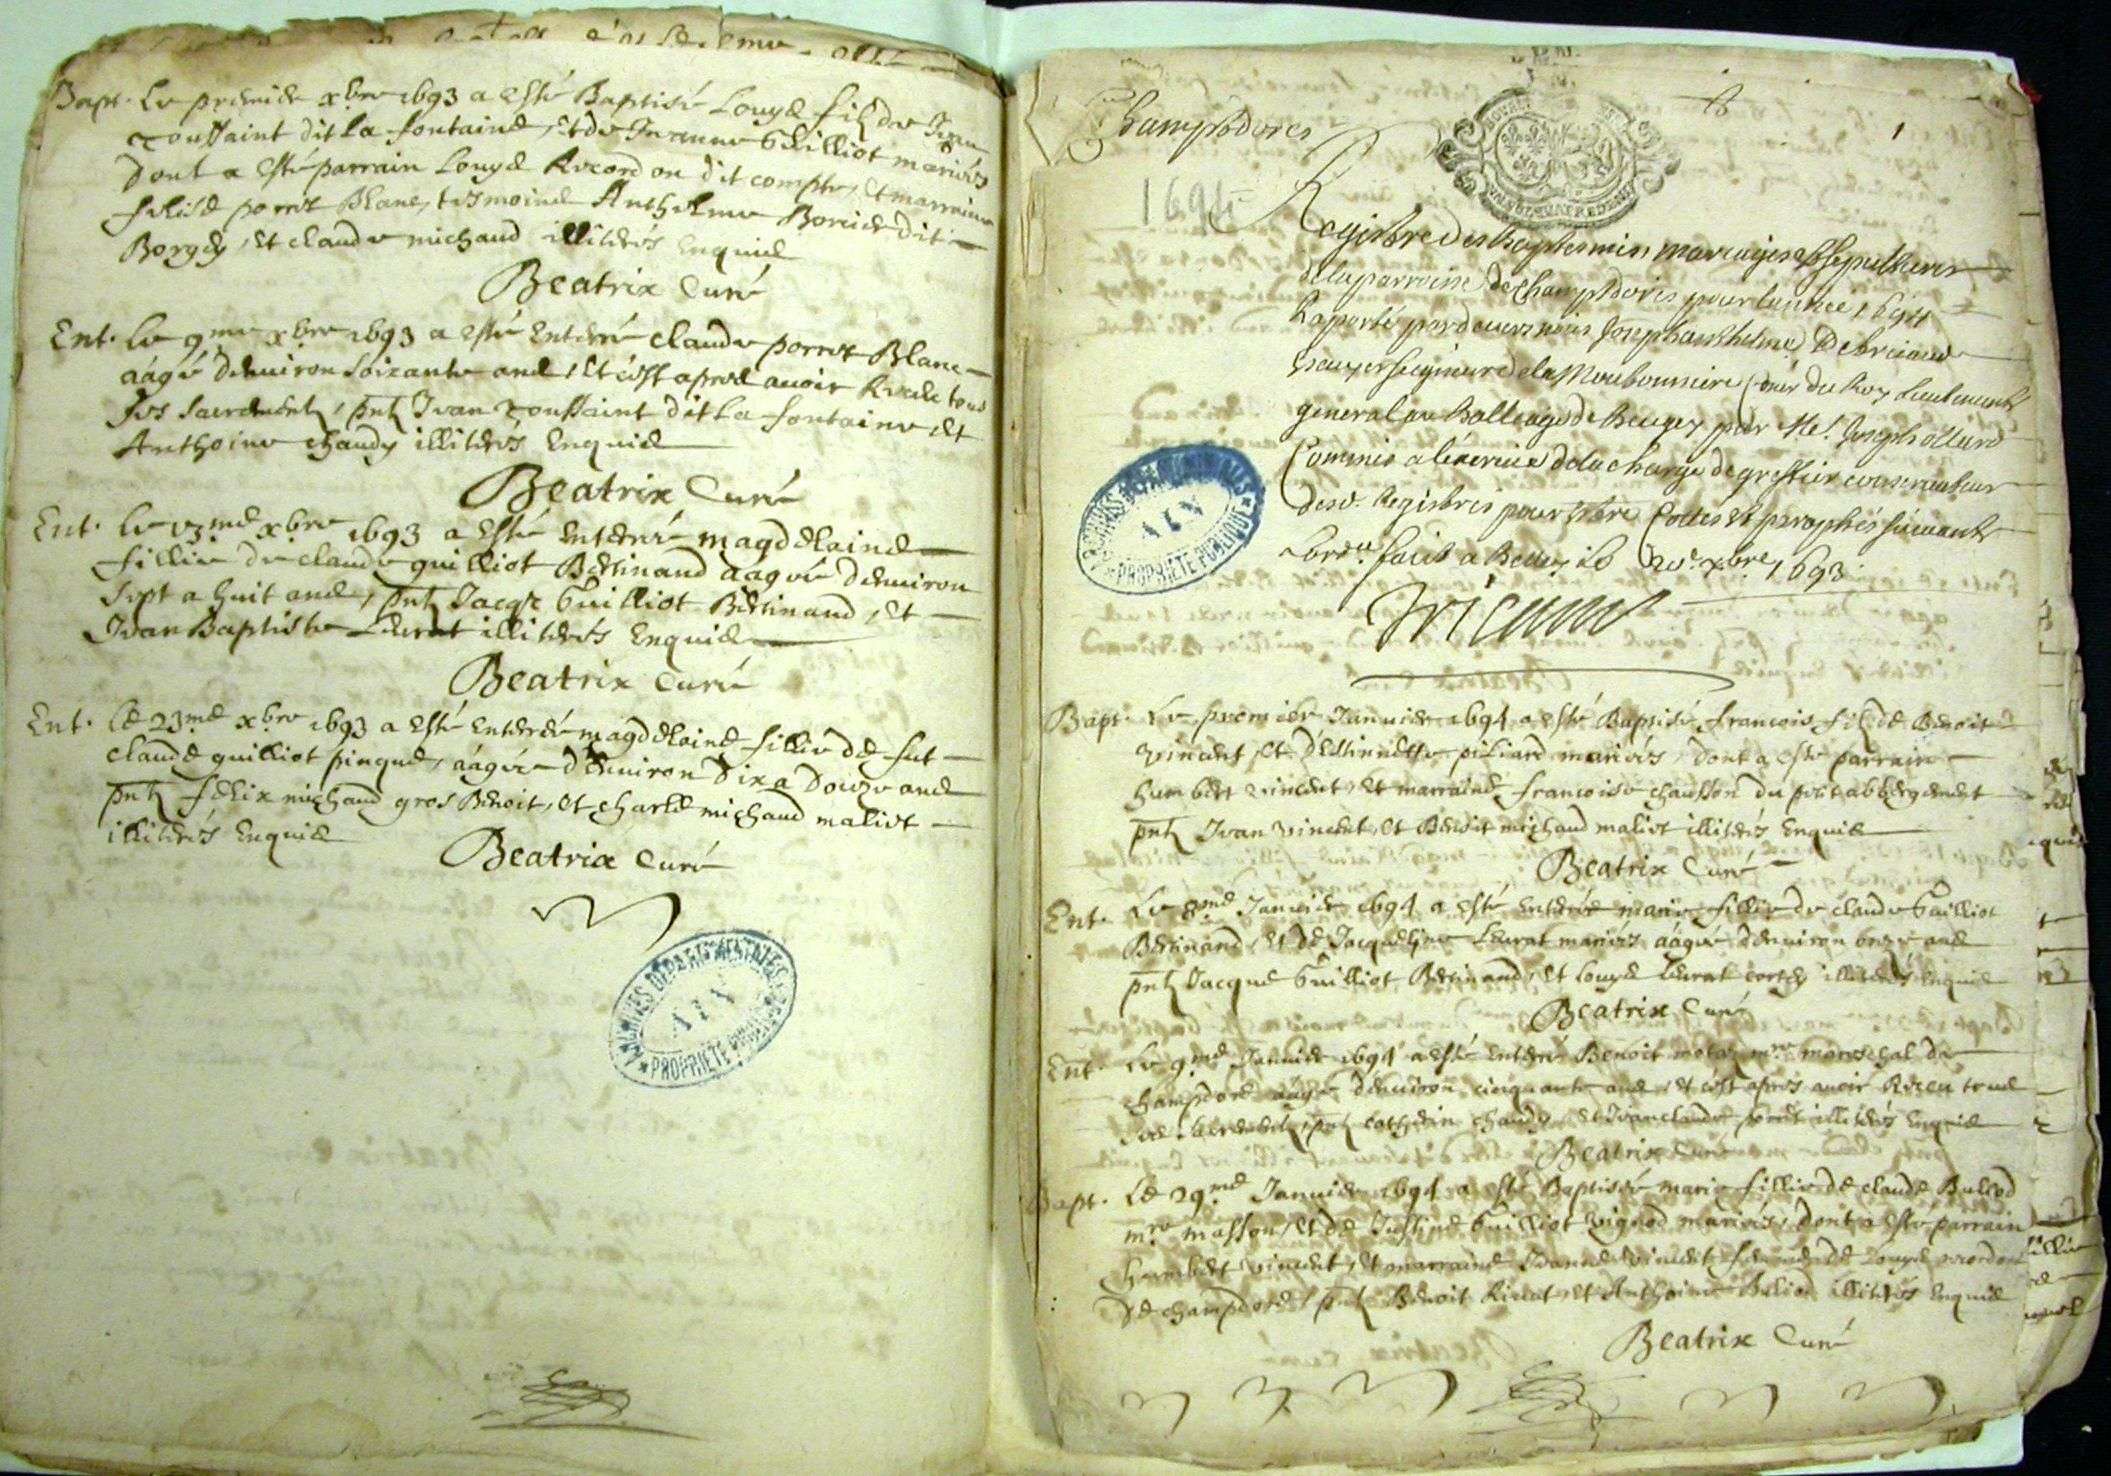 Bapt. Le premier xbre 1693 a esté Baptisé Louys fils de Jean
Toussaint dit la fontaine, et de Jeanne Guilliot mariés
dont a esté parrain Louys Recordon dit compte, et marraine
felise perret Blanc, tesmoins Anthelme Borcier dit
Borgey, et claude michaud illiterés Enquis
Beatrix Curé
Ent. Le 9me xbre 1693 a esté Enterré claude perret Blanc
aágé d'environ soixante ans, et c'est apres avoir Receu tous
ses sacrements, pnts Jean Toussaint dit la fontaine, et
Anthoine chaudy illiterés Enquis
Beatrix Curé
Ent. Le 13me xbre 1693 a esté enterrée magdelaine
fillie de claude guilliot Bertinand aágée d'environ
sept a huit ans, pnts Jacques Guilliot Bertinand, et
Jean Baptiste Leurat illiterés Enquis
Beatrix Curé
Ent. Le 23me xbre 1693 a esté enterrée magdelaine fillie de fut
claude guilliot pinque, aágée d'environ dix a douze ans
pnts felix michaud gros Benoit, et charle michaud maliet
illiterés Enquis
Beatrix Curé
ARCHIVES DÉPARTEMENTALES
AIN
PROPRIÉTÉ PUBLIQUE
Champdores
1
1694
Registre des baptesmes mariages et sepultures
de la parroisse de Champdores pour l'année 1694
Raporté pardevers nous Joseph anthelme
seigneur de la Moubonniere Coner du Roy Lieutenant
general au Balliage de Beugey par Me. Joseph
Commis a l'exercice de la charge de greffier conservateur
desd. Registres pour estre Cottes et paraphés suivant
l'ord. faict a Belley le xbre 1693
ARCHIVES DÉPARTEMENTALES
AIN
PROPRIÉTÉ PUBLIQUE
Bapt. Le premier Janvier 1694 a esté Baptisé francois fils de Benoit
vincent, et d'Estiennette piliard mariés, dont a esté parrain
humbert vincent, et marraine francoise chausson du petit abbergement
pnts Jean vincent, et Benoit michaud maliet illiterés Enquis
Beatrix Curé
Ent. Le 8me Janvier 1694 a esté enterrée marie fillie de claude Guilliot
Bertinand, et de Jacqueline Leurat mariés aágée d'environ onze ans
pnts Jacque Guilliot Bertinand, et Louys Leurat illiterés Enquis
Beatrix Curé
Ent. Le 9me Janvier 1694 a esté enterré Benoit mre mareschal de
champdore aágé d'environ cinquante ans, et c'est apres avoir Receu tous
ses sacrements, pnts catherin chaudy, et Jean claude perret illiterés Enquis
Beatrix Curé
Bapt. Le 29me Janvier 1694 a esté Baptisée marie fillie de claude Buliod
mre masson, et de Justine Guilliot vignod mariés, dont a esté parrain
humbert vincent, et marraine Jeanne vincent femme de Louys recordon
de champdore, pnts Benoit Rivat, et Anthoine Buliod illiterés Enquis
Beatrix Curé